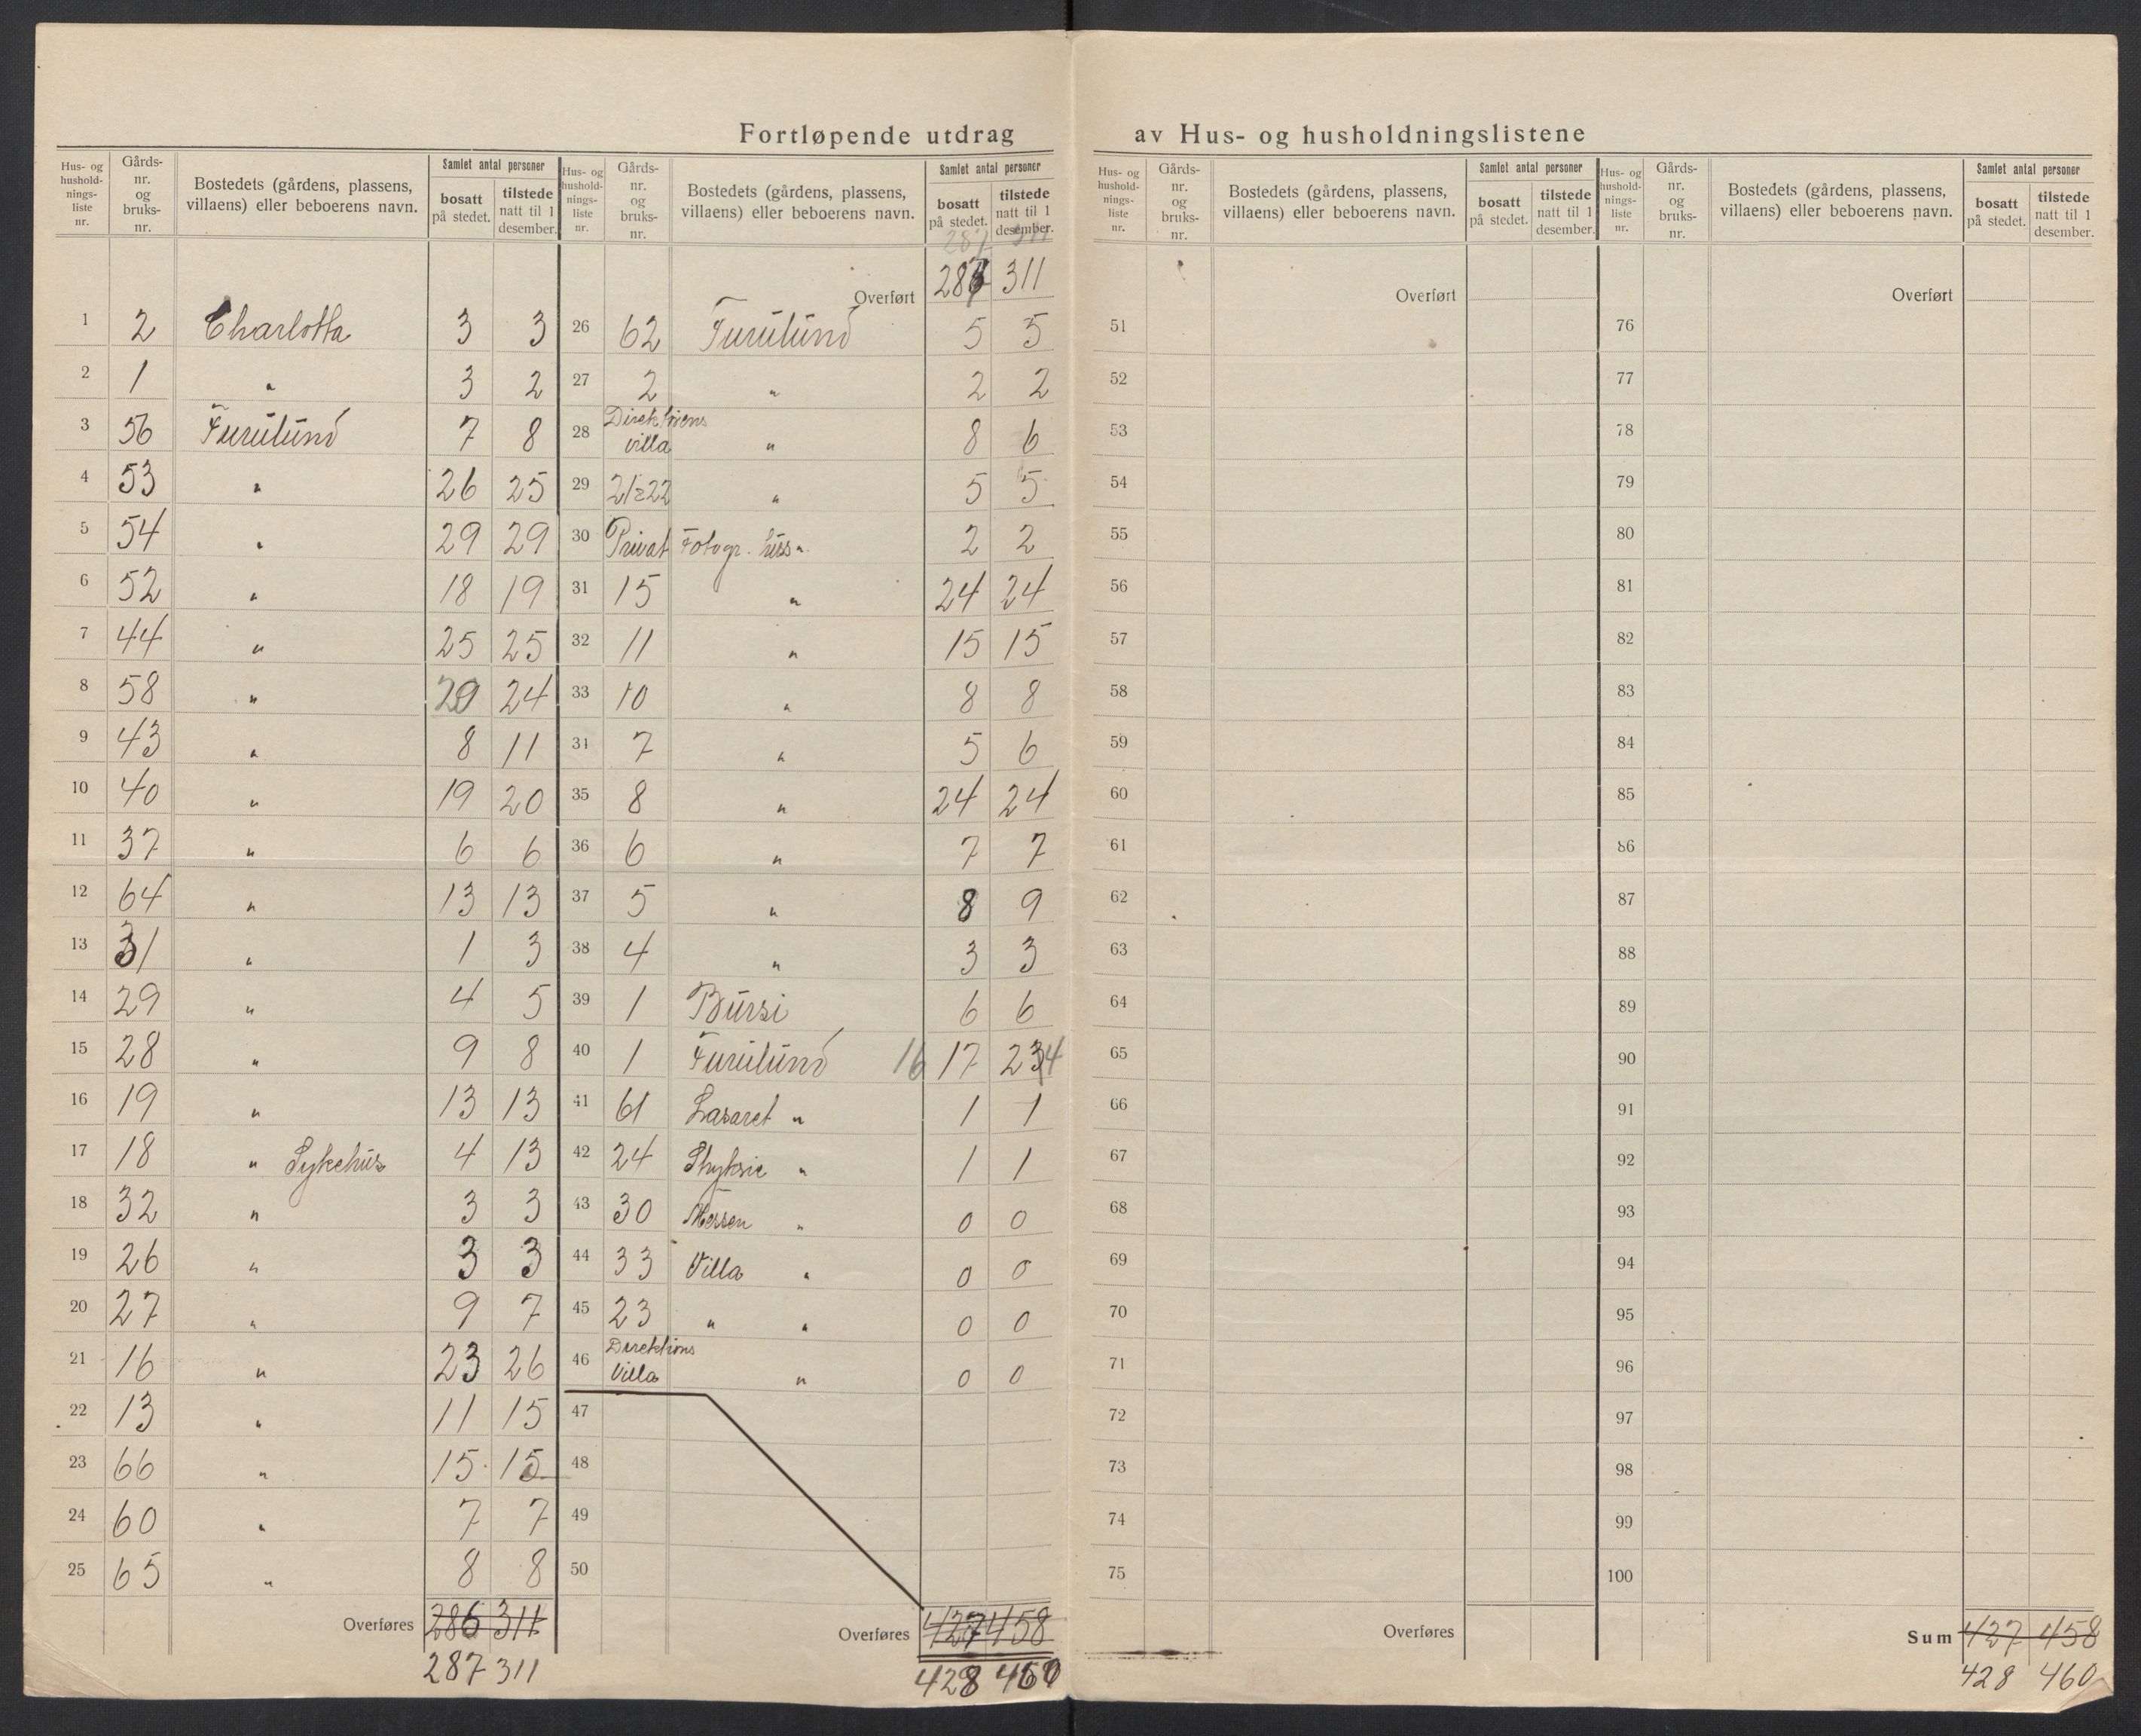 Fortløpende utdrag av Hus- og husholdningslistene
Hus- og husholdningsliste nr. | Gårds-nr. og bruks-nr. | Bostedets (gårdens, plassens, villaens) eller beboerens navn. | Samlet antal personer | bosatt på stedet. | tilstede natt til 1 desember.
1 2 Charlotta 3 3
2 1 " 3 2
3 56 Furulund 7 8
4 53 " 26 25
5 54 " 29 29
6 52 " 18 19
7 44 " 25 25
8 58 " 29 24
9 43 " 8 11
10 40 " 19 20
11 37 " 6 6
12 64 " 13 13
13 31 " 1 3
14 29 " 4 5
15 28 " 9 8
16 19 " 13 13
17 18 " Sykehus 4 13
18 32 " 3 3
19 26 " 3 3
20 27 " 9 7
21 16 " 23 26
22 13 " 11 15
23 66 " 15 15
24 60 " 7 7
25 65 " 8 8
Overføres 286 311
287 311
Hus- og husholdningsliste nr. | Gårds-nr. og bruks-nr. | Bostedets (gårdens, plassens, villaens) eller beboerens navn. | Samlet antal personer | bosatt på stedet. | tilstede natt til 1 desember.
287 311
Overført 287 311
26 62 Furulund 5 5
27 2 " 2 2
28 villa " 8 6
29 " 5 5
30 Privat Fotogr. hus " 2 2
31 15 " 24 24
32 11 " 15 15
33 10 " 8 8
34 7 " 5 6
35 8 " 24 24
36 6 " 7 7
37 5 " 8 9
38 4 " 3 3
39 1 Bursi 6 6
40 1 Furulund 16 17 234
41 61 Lasaret " 1 1
42 24 " 1 1
43 30 Messen " 0 0
44 33 Villa " 0 0
45 23 " " 0 0
46 Direktions Villa " 0 0
47
48
49
50
Overføres 427 458
428 460
Hus- og husholdningsliste nr. | Gårds-nr. og bruks-nr. | Bostedets (gårdens, plassens, villaens) eller beboerens navn. | Samlet antal personer | bosatt på stedet. | tilstede natt til 1 desember.
Overført
51
52
53
54
55
56
57
58
59
60
61
62
63
64
65
66
67
68
69
70
71
72
73
74
75
Overføres
Hus- og husholdningsliste nr. | Gårds-nr. og bruks-nr. | Bostedets (gårdens, plassens, villaens) eller beboerens navn. | Samlet antal personer | bosatt på stedet. | tilstede natt til 1 desember.
Overført
76
77
78
79
80
81
82
83
84
85
86
87
88
89
90
91
92
93
94
95
96
97
98
99
100
Sum 427 458
428 460